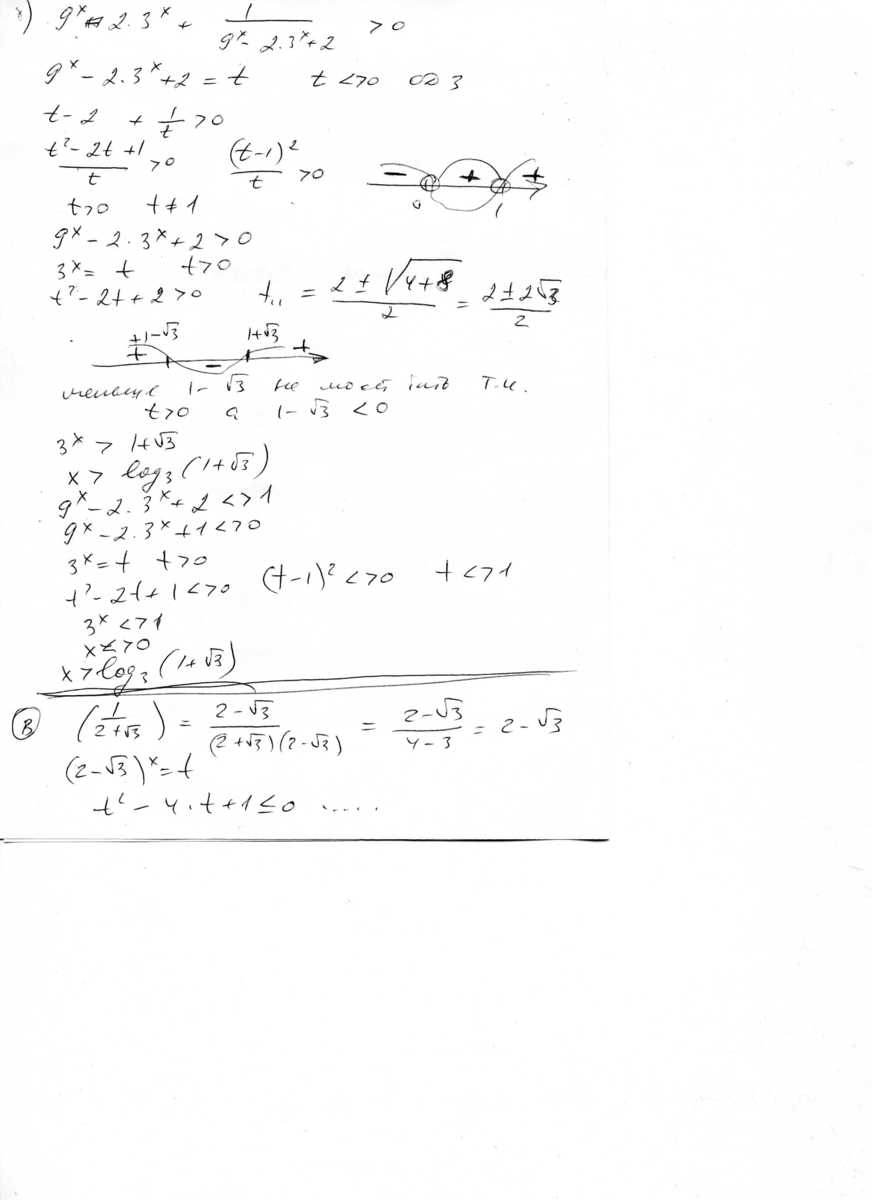 9^x - 2·3^x + 1/(9^x - 2·3^x + 2) > 0
9^x - 2·3^x + 2 = t    t <> 0    ОДЗ
t - 2 + 1/t > 0
(t² - 2t + 1)/t > 0    (t-1)²/t > 0    - + +
0 1
t > 0    t ≠ 1
9^x - 2·3^x + 2 > 0
3^x = t    t > 0
t² - 2t + 2 > 0    t = (2 ± √(4+8))/2 = (2 ± 2√3)/2
1-√3    1+√3
+ - +
1-√3 не
t > 0    а    1-√3 < 0
3^x > 1+√3
x > log₃(1+√3)
9^x - 2·3^x + 2 <> 1
9^x - 2·3^x + 1 <> 0
3^x = t    t > 0
t² - 2t + 1 <> 0    (t-1)² <> 0    t <> 1
3^x <> 1
x <> 0
x > log₃(1+√3)
В (1/(2+√3)) = (2-√3)/((2+√3)(2-√3)) = (2-√3)/(4-3) = 2-√3
(2-√3)^x = t
t² - 4·t + 1 ≤ 0 .....